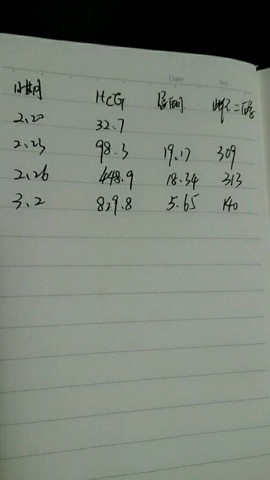 时间 HCG 孕酮 雌二醇
2.20 32.7
2.23 98.3 19.17 309
2.26 448.9 18.34 313
3.2 829.8 5.65 140